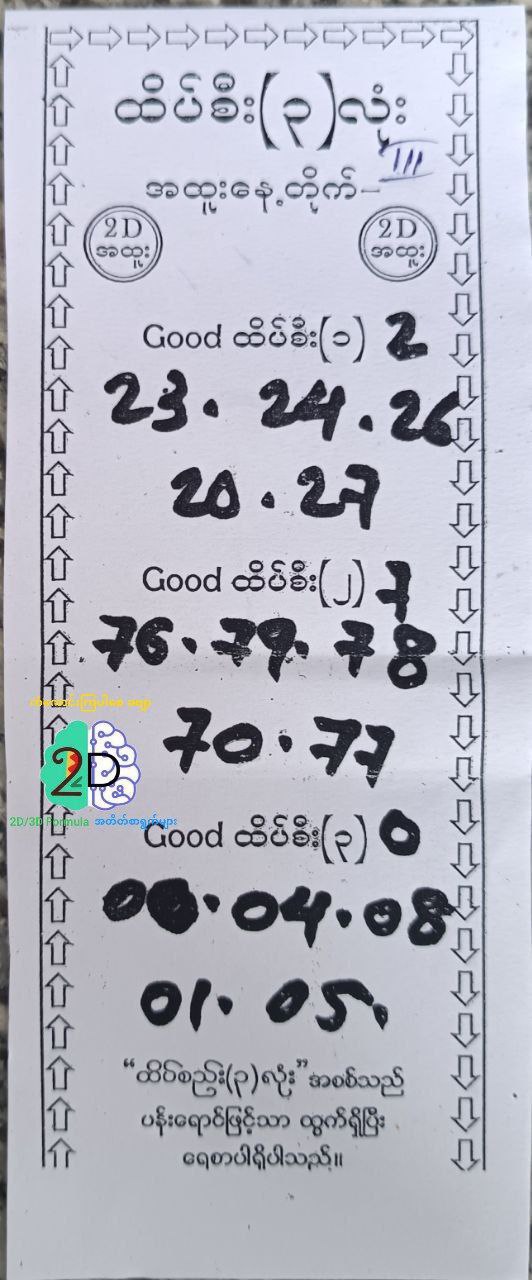 ထိပ်စီး(၃)လုံး
III
အထူးနေ့တိုက်-
2D
အထူး
2D
အထူး
Good ထိပ်စီး(၁) 2
23. 24. 26
20. 27
Good ထိပ်စီး(၂) 7
76. 79. 78
70. 77
2D
2D/3D Formula အတိတ်စာရွက်များ
Good ထိပ်စီး(၃) 0
00. 04. 08
01. 05.
“ထိပ်စည်း(၃)လုံး”အစစ်သည်
ပန်းရောင်ဖြင့်သာ ထွက်ရှိပြီး
ရေစာပါရှိပါသည်။